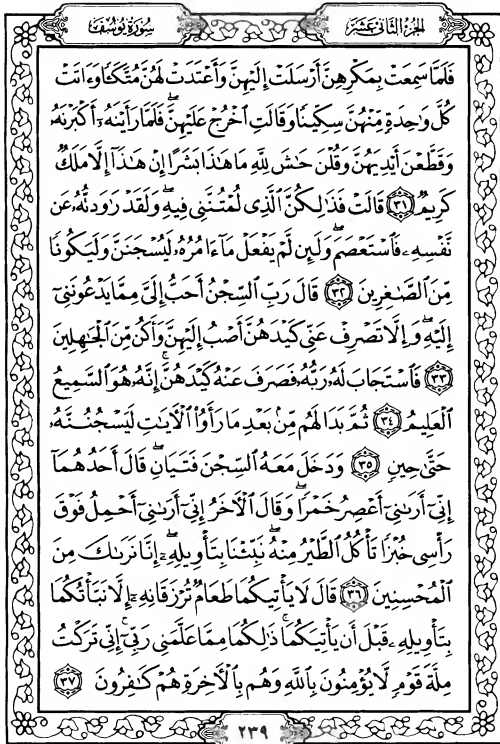 الجزء الثاني عشر
سورة يوسف
فَلَمَّا سَمِعَتْ بِمَكْرِهِنَّ أَرْسَلَتْ إِلَيْهِنَّ وَأَعْتَدَتْ لَهُنَّ مُتَّكَـًٔا وَءَاتَتْ
كُلَّ وَٰحِدَةٍ مِّنْهُنَّ سِكِّينًا وَقَالَتِ ٱخْرُجْ عَلَيْهِنَّ ۖ فَلَمَّا رَأَيْنَهُۥٓ أَكْبَرْنَهُۥ
وَقَطَّعْنَ أَيْدِيَهُنَّ وَقُلْنَ حَٰشَ لِلَّهِ مَا هَٰذَا بَشَرًا إِنْ هَٰذَآ إِلَّا مَلَكٌ
كَرِيمٌ ۝٣١ قَالَتْ فَذَٰلِكُنَّ ٱلَّذِى لُمْتُنَّنِى فِيهِ ۖ وَلَقَدْ رَٰوَدتُّهُۥ عَن
نَّفْسِهِۦ فَٱسْتَعْصَمَ ۖ وَلَئِن لَّمْ يَفْعَلْ مَآ ءَامُرُهُۥ لَيُسْجَنَنَّ وَلَيَكُونًا
مِّنَ ٱلصَّٰغِرِينَ ۝٣٢ قَالَ رَبِّ ٱلسِّجْنُ أَحَبُّ إِلَىَّ مِمَّا يَدْعُونَنِىٓ
إِلَيْهِ ۖ وَإِلَّا تَصْرِفْ عَنِّى كَيْدَهُنَّ أَصْبُ إِلَيْهِنَّ وَأَكُن مِّنَ ٱلْجَٰهِلِينَ
۝٣٣ فَٱسْتَجَابَ لَهُۥ رَبُّهُۥ فَصَرَفَ عَنْهُ كَيْدَهُنَّ ۚ إِنَّهُۥ هُوَ ٱلسَّمِيعُ
ٱلْعَلِيمُ ۝٣٤ ثُمَّ بَدَا لَهُم مِّنۢ بَعْدِ مَا رَأَوُا۟ ٱلْءَايَٰتِ لَيَسْجُنُنَّهُۥ
حَتَّىٰ حِينٍ ۝٣٥ وَدَخَلَ مَعَهُ ٱلسِّجْنَ فَتَيَانِ ۖ قَالَ أَحَدُهُمَآ
إِنِّىٓ أَرَىٰنِىٓ أَعْصِرُ خَمْرًا ۖ وَقَالَ ٱلْءَاخَرُ إِنِّىٓ أَرَىٰنِىٓ أَحْمِلُ فَوْقَ
رَأْسِى خُبْزًا تَأْكُلُ ٱلطَّيْرُ مِنْهُ ۖ نَبِّئْنَا بِتَأْوِيلِهِۦٓ ۖ إِنَّا نَرَىٰكَ مِنَ
ٱلْمُحْسِنِينَ ۝٣٦ قَالَ لَا يَأْتِيكُمَا طَعَامٌ تُرْزَقَانِهِۦٓ إِلَّا نَبَّأْتُكُمَا
بِتَأْوِيلِهِۦ قَبْلَ أَن يَأْتِيَكُمَا ۚ ذَٰلِكُمَا مِمَّا عَلَّمَنِى رَبِّىٓ ۚ إِنِّى تَرَكْتُ
مِلَّةَ قَوْمٍ لَّا يُؤْمِنُونَ بِٱللَّهِ وَهُم بِٱلْءَاخِرَةِ هُمْ كَٰفِرُونَ ۝٣٧
٢٣٩